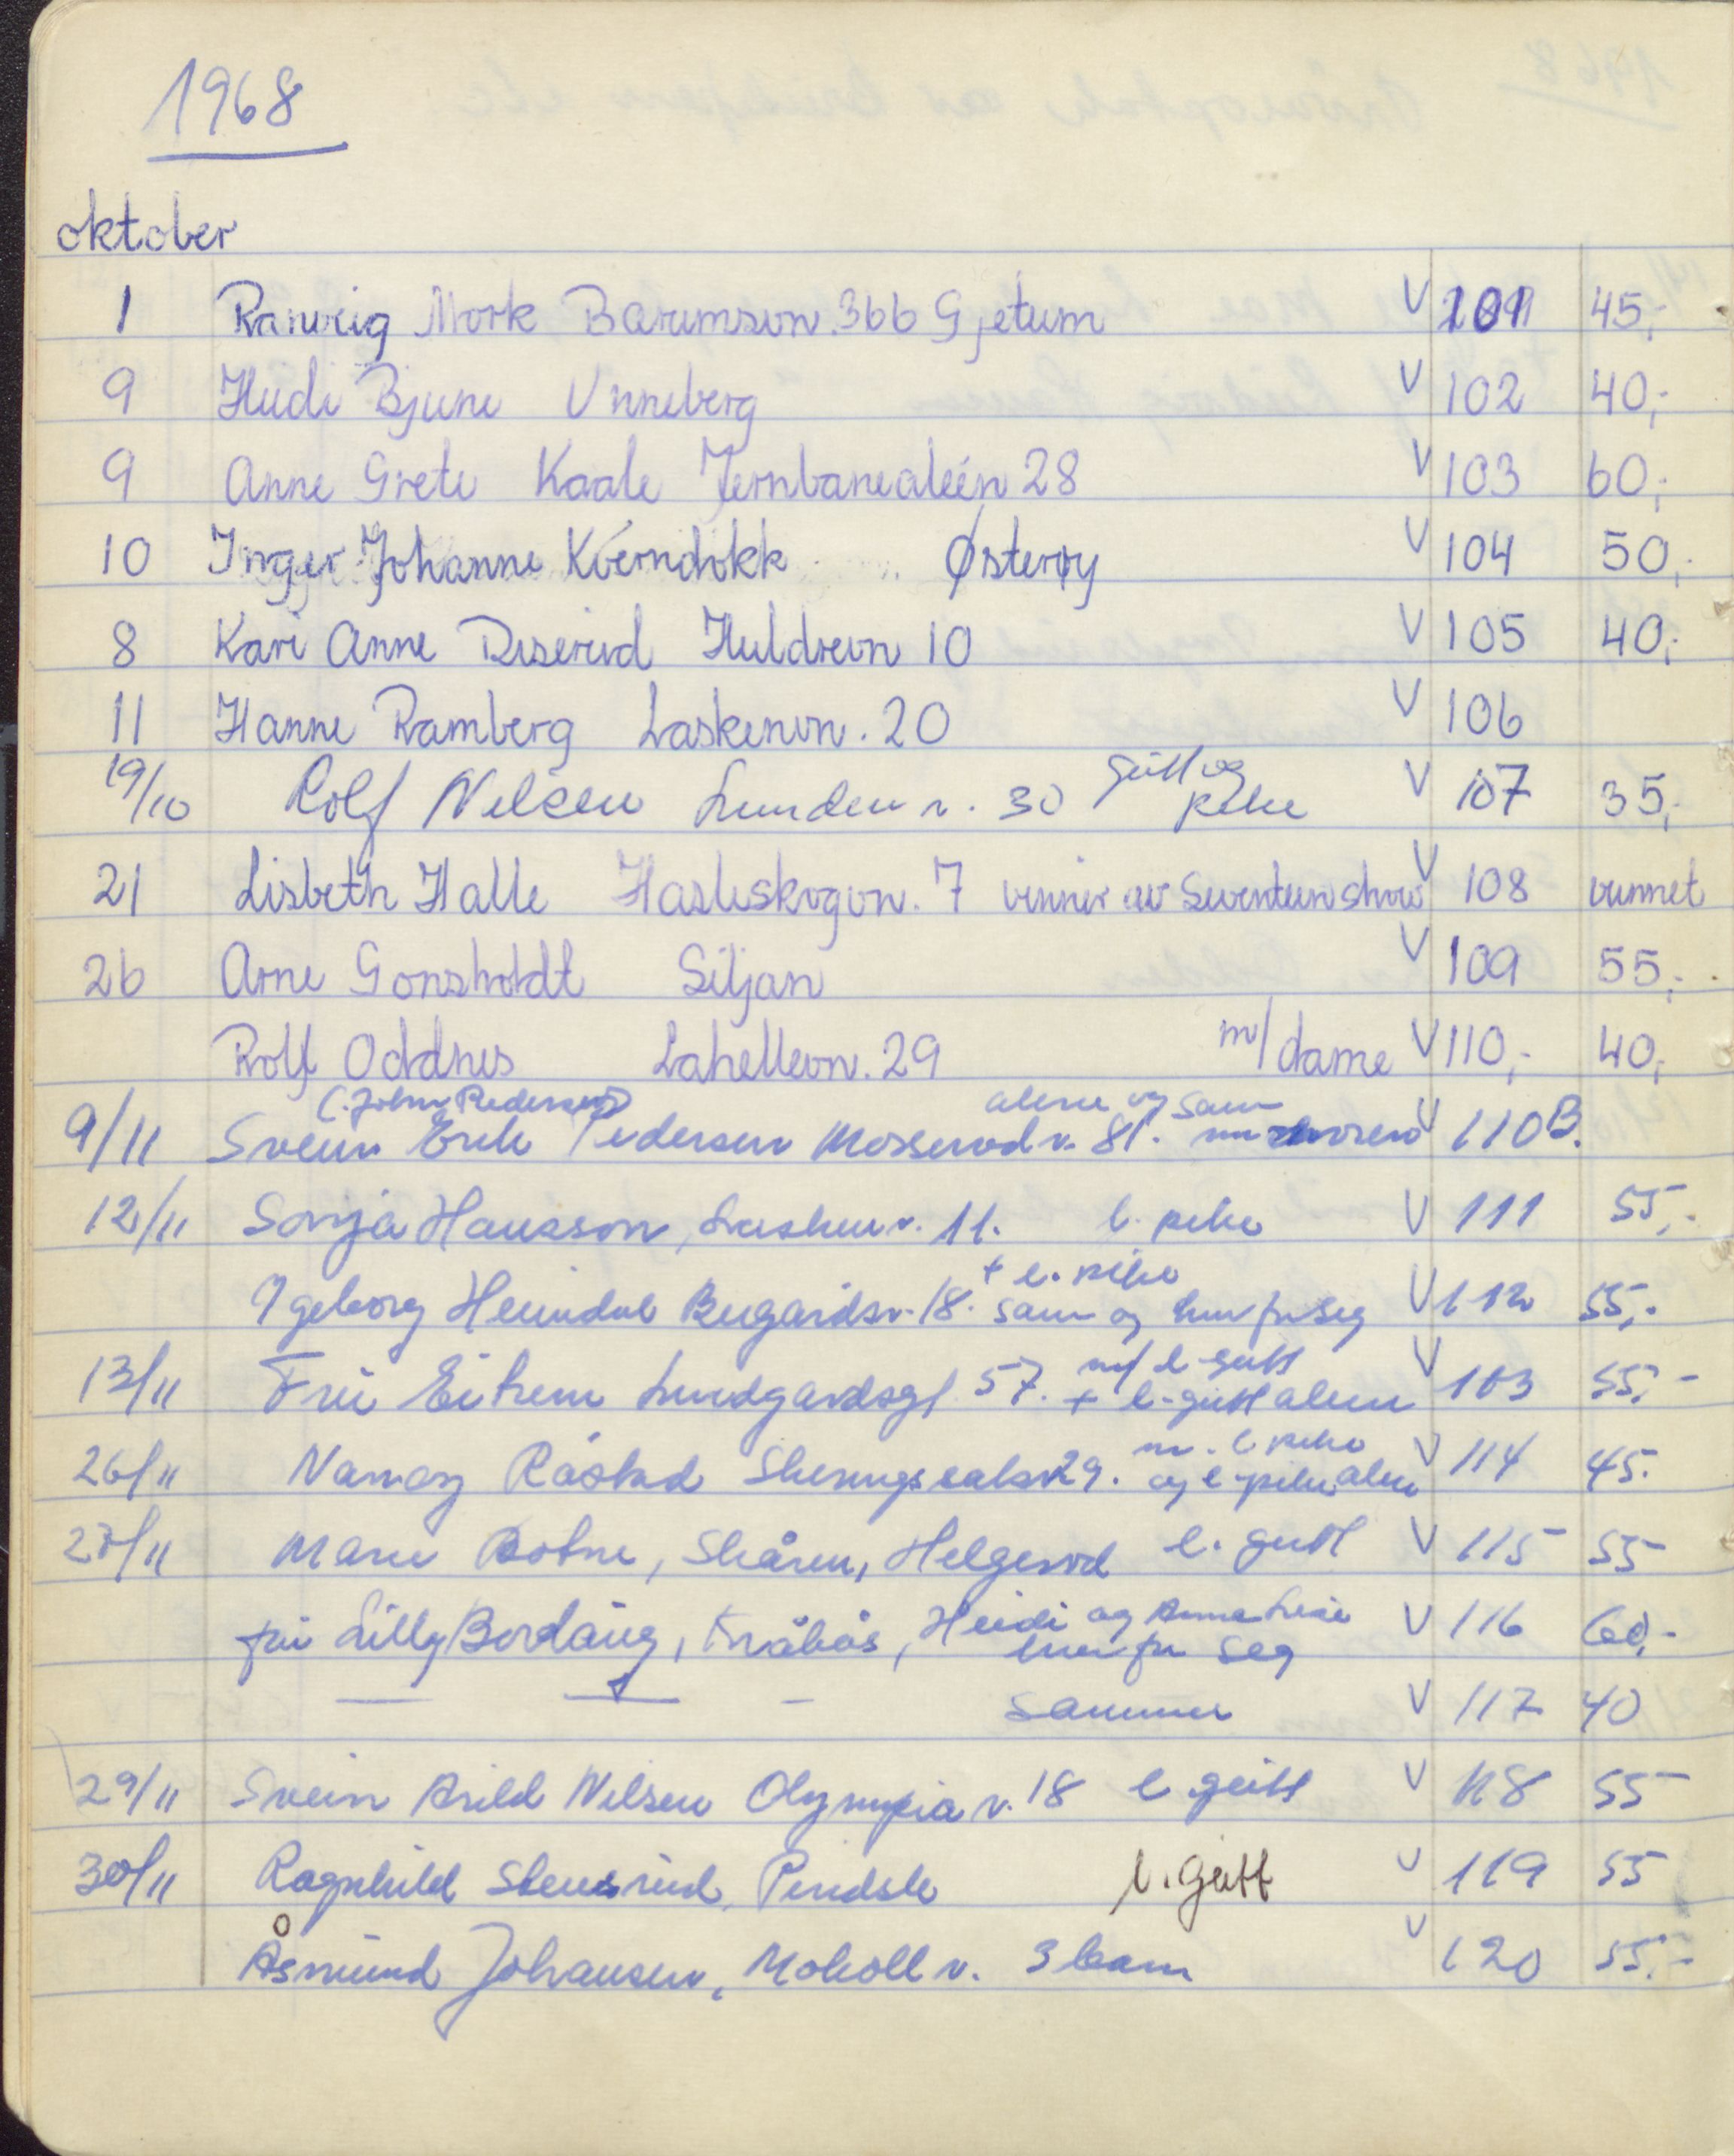 1968
oktober
1 Ranveig Mork Bærumsvn. 366 Gjetum V 101 45,-
9 Heidi Bjune Unneberg V 102 40,-
9 Anne Grete Kaale Jernbanealeén 28 V 103 60,-
10 Inger Johanne Kverndokk Østerøy V 104 50,-
8 Kari Anne Diserud Huldrevn 10 V 105 40,-
11 Hanne Ramberg Laskenvn. 20 V 106
19/10 Rolf Nilsen Lunden v. 30 gutt og pike V 107 35,-
21 Lisbeth Halle Hasleskogvn. 7 vinner av Seventeen show V 108 vunnet
26 Arne Gonsholdt Siljan V 109 55,-
Rolf Oddnes Lahellevn. 29 m/dame V 110,- 40,-
(John Pedersen) alene og sam
9/11 Svein Erik Pedersen Mosserød v. 81. V 110B.
12/11 Sonja Hansson, Lasken v. 11. l. pike V 111 55,-
+ l. pike
Igeborg Heimdal Bugårdsv. 18. sam og hver for seg V 112 55,-
m/ l. gutt
13/11 Fru Eitrem Lundgårdsgt 57. + l. gutt alene V 113 55,-
m. l. pike
26/11 Råstad 29. og l. pike alene V 114 45.
27/11 Marie Bohne, Skåren, Helgerød l. gutt V 115 55
fru Lilly Bordäng, Kråkås, Heidi og Anne Lise V 116 60,-
hver for seg
sammen V 117 40
29/11 Svein Arild Nilsen Olympia v. 18 l. gutt V 118 55
30/11 Ragnhild Stensrud, Pindsle l. gutt V 119 55
Åsmund Johansen, Moholl v. 3 barn V 120 55,-